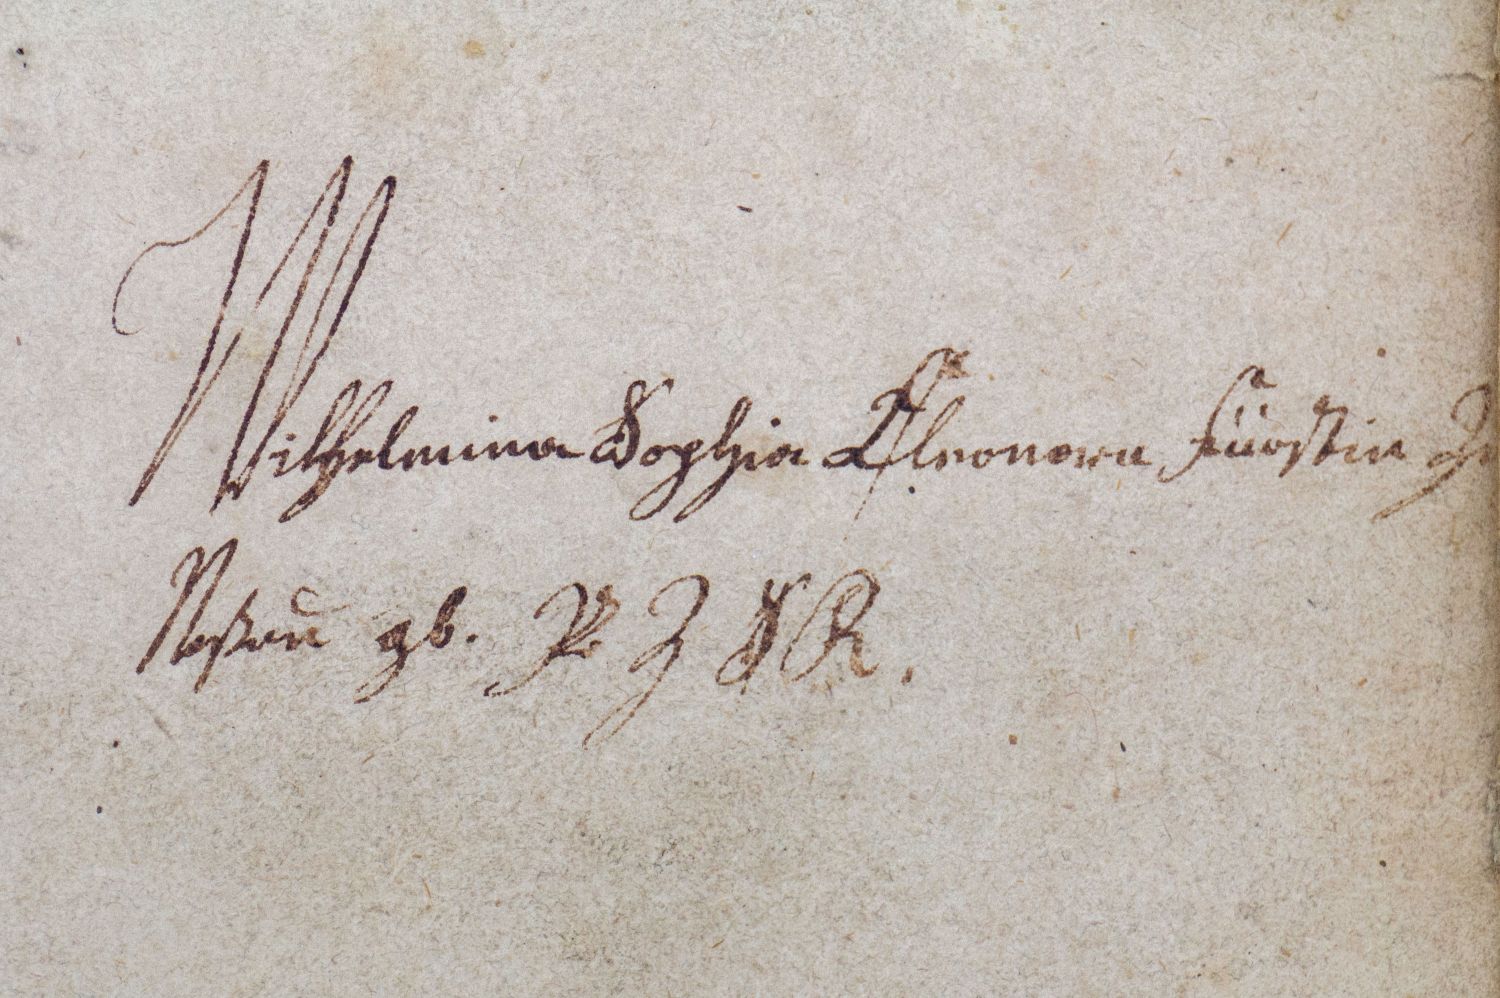 Wilhelmina Sophia Eleonora Fürstin Zu
Naßau gb. P Z S R.